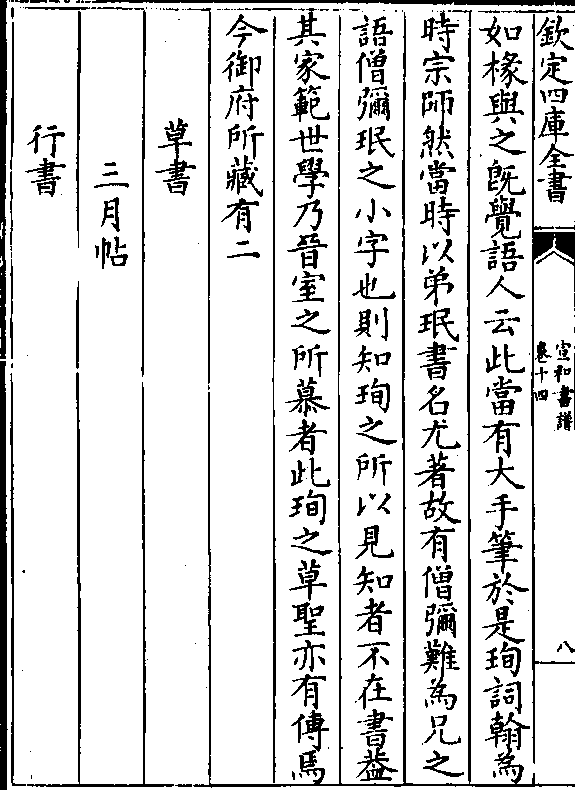 欽定四庫全書
宣和書譜
卷十四
八
如椽與之既覺語人云此當有大手筆於是珣詞翰為
時宗師然當時以弟珉書名尤著故有僧彌難為兄之
語僧彌珉之小字也則知珣之所以見知者不在書蓋
其家範世學乃晉室之所慕者此珣之草聖亦有傳焉
今御府所藏有二
草書
三月帖
行書